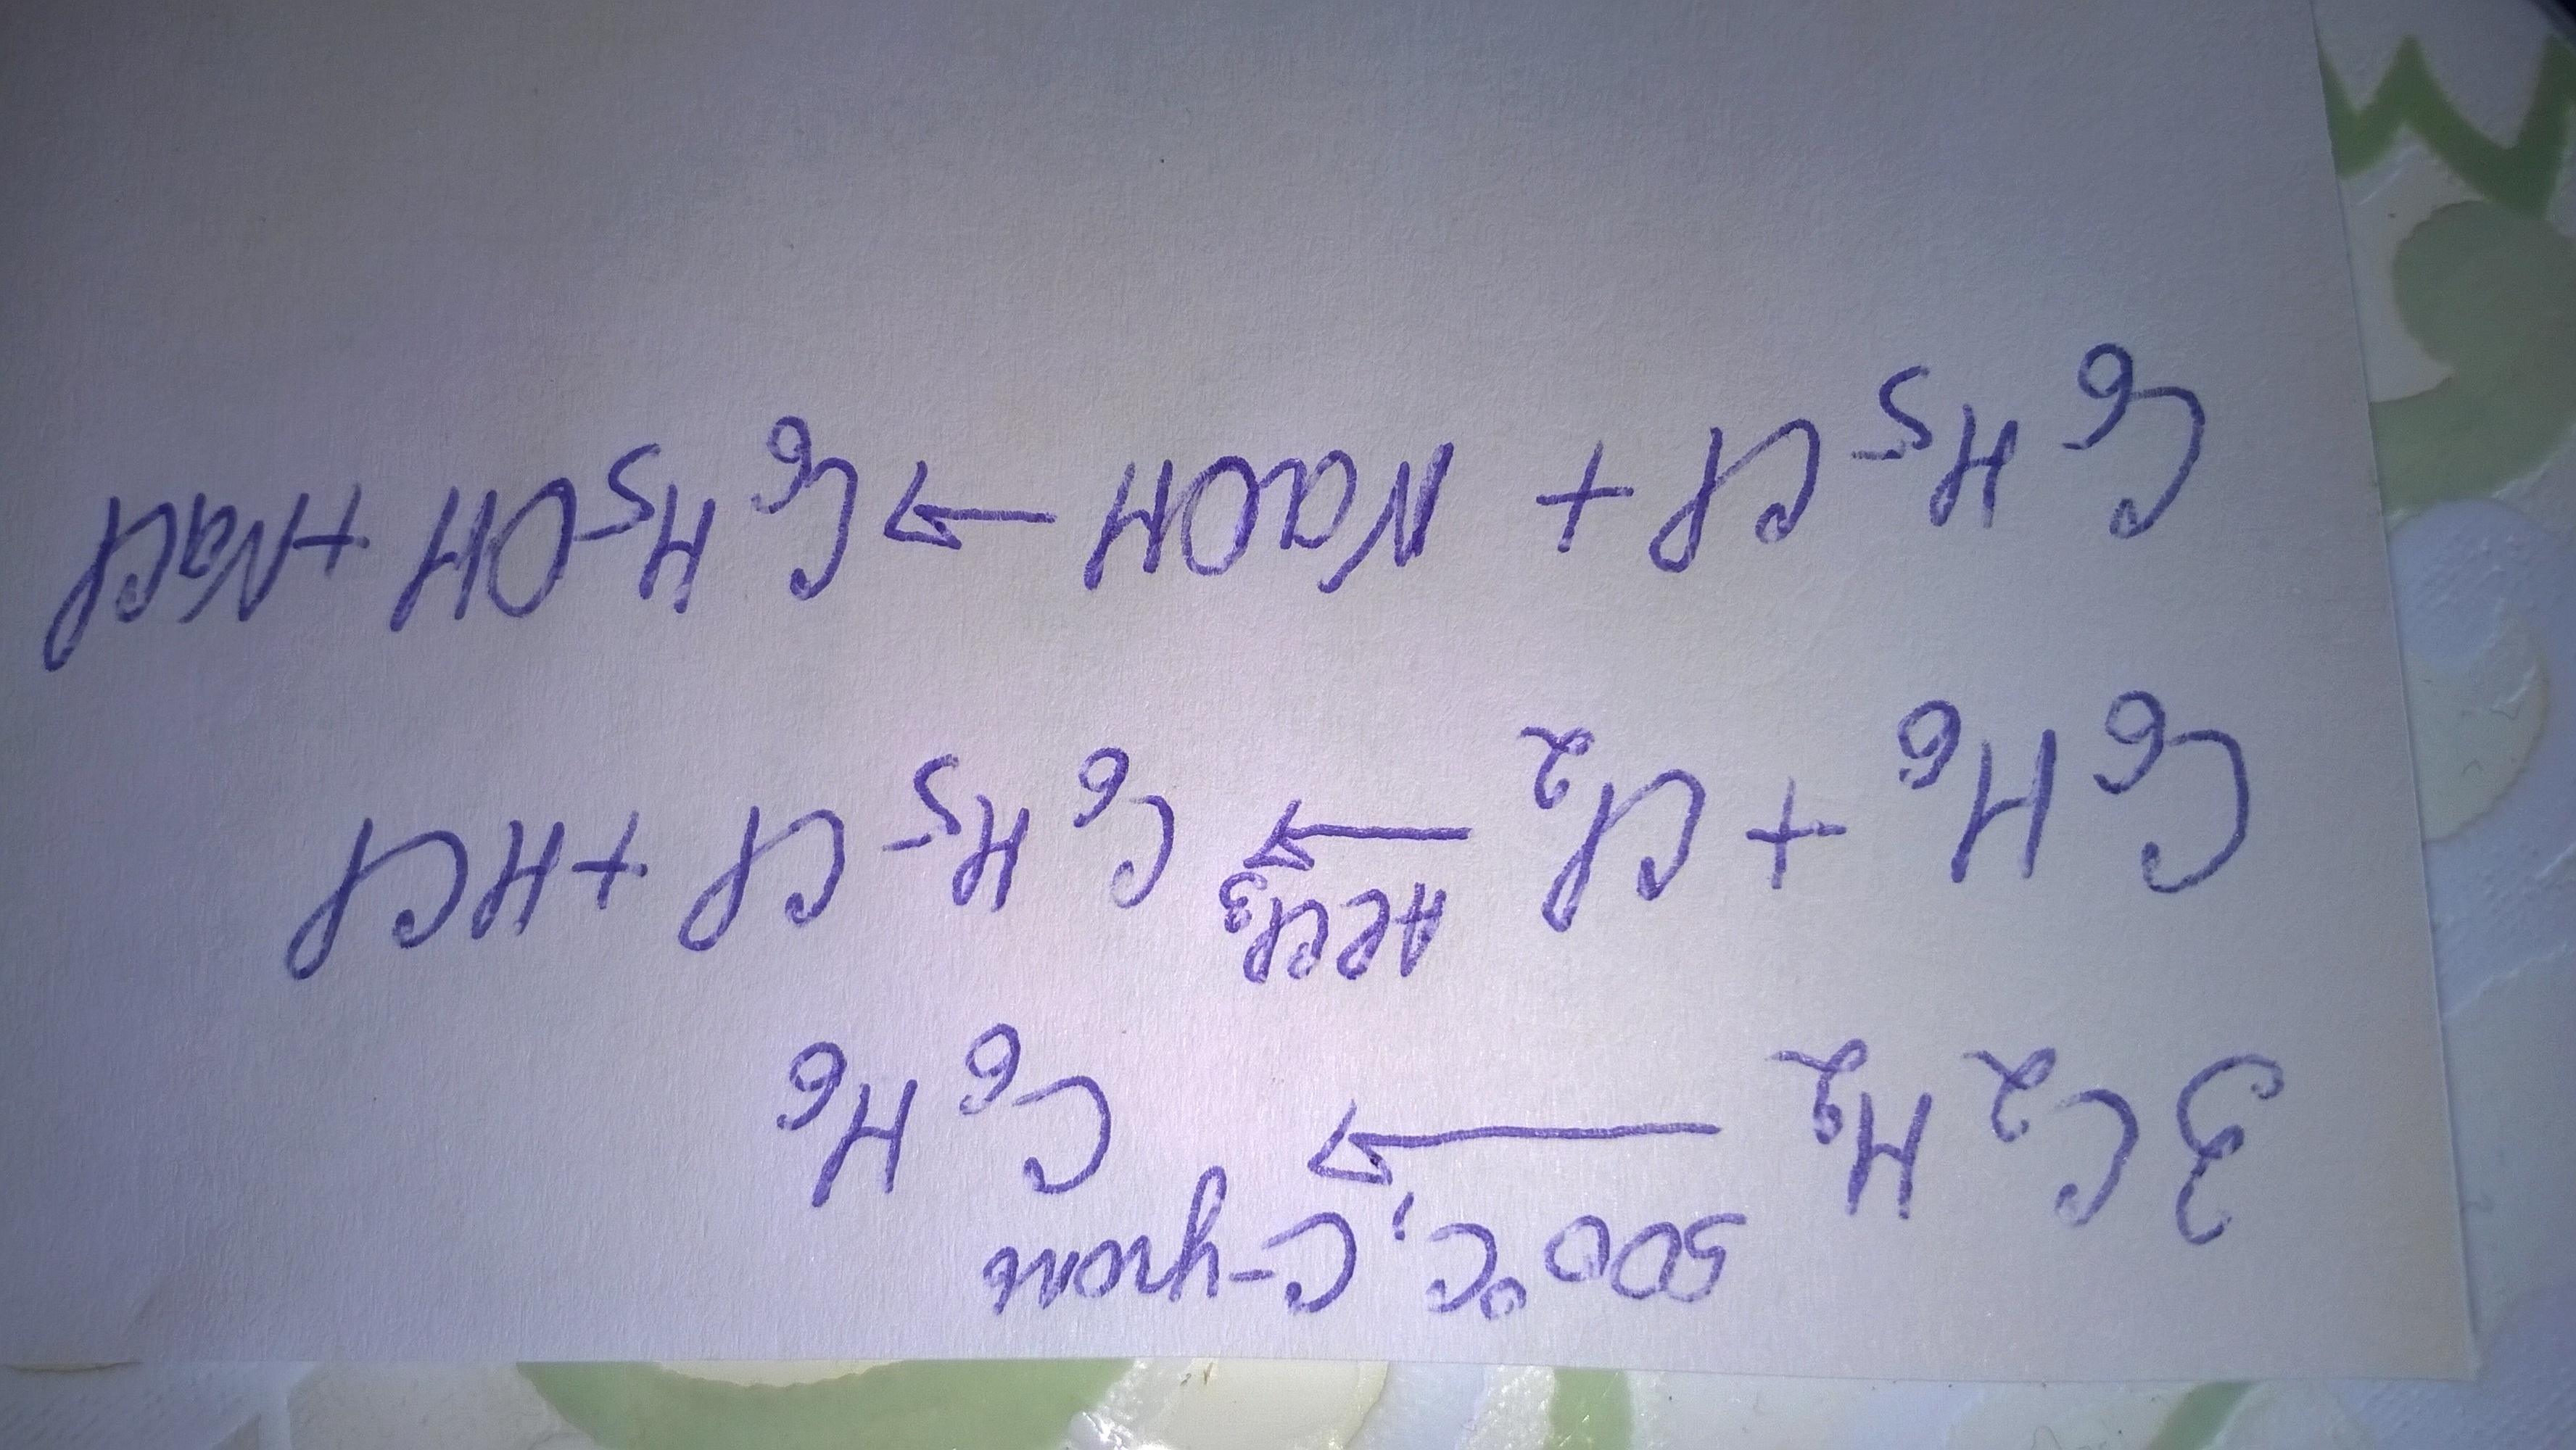 500°C, C-уголь
3C₂H₂ → C₆H₆
C₆H₆ + Cl₂ →(AlCl₃) C₆H₅-Cl + HCl
C₆H₅-Cl + NaOH → C₆H₅-OH + NaCl